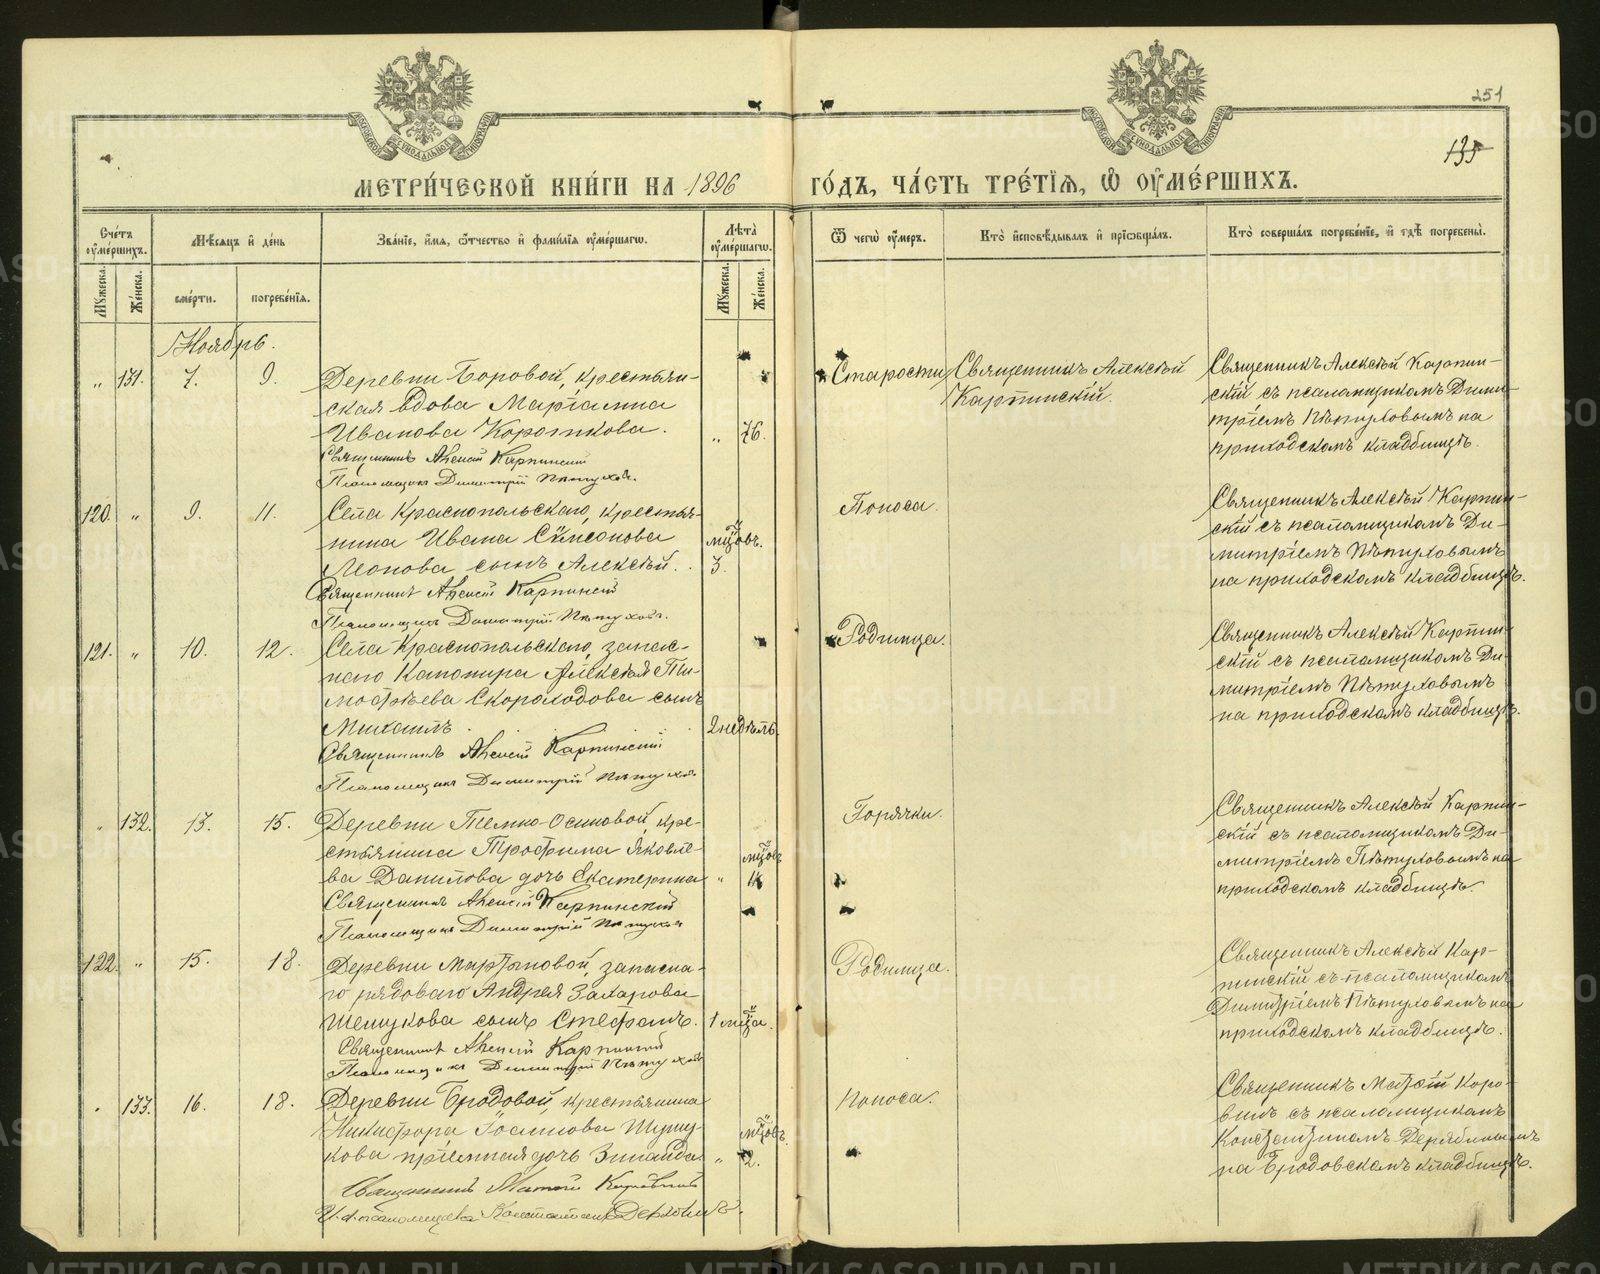 251
135
МЕТРИ́ЧЕСКОЙ КНИ́ГИ НА 1896 ГО́ДЪ, ЧА́СТЬ ТРЕ́ТІЯ, Ѽ ОУ҆МЕ́РШИХЪ.
Сче́тъ оу҆ме́ршихъ.
Мꙋ́жеска.
Же́нска.
Мѣ́сяцъ и҆ де́нь
сме́рти.
погребе́нїя.
Зва́нїе, и҆́мя, ѻ҆́тчество и҆ фами́лїя оу҆ме́ршагѡ.
Лѣ́та̀ оу҆ме́ршагѡ.
Мꙋ́жеска.
Же́нска.
Ѿ чегѡ̀ оу҆́меръ.
Кто̀ и҆сповѣ́дывалъ и҆ прїѡбща́лъ.
Кто̀ соверша́лъ погребе́нїе, и҆ гдѣ̀ погребены̀.
Ноябрь.
„ 131. 7. 9.
Деревни Боровой, крестьян-
ская вдова Маріанна
Иванова Короткова. „ 76.
Священникъ Алексій Карпинскій
Псаломщикъ Димитрій Пѣтуховъ.
Старости
Священникъ Алексѣй
Карпинскій.
Священникъ Алексѣй Карпин-
скій съ псаломщикомъ Дими-
тріемъ Пѣтуховымъ на
приходскомъ кладбищѣ.
120. „ 9. 11.
Села Краснопольскаго, крестья-
нина Ивана Симеонова мцовъ.
Леонова сынъ Алексѣй. 3.
Священникъ Алексій Карпинскій
Псаломщикъ Димитрій Пѣтуховъ.
Поноса.
Священникъ Алексѣй Карпин-
скій съ псаломщикомъ Ди-
митріемъ Пѣтуховымъ
на приходскомъ кладбищѣ.
121. „ 10. 12.
Села Краснопольскаго, запас-
наго Канонира Алексѣя Ти-
мофѣева Скороходова сынъ
Михаилъ. 2 недѣль.
Священникъ Алексій Карпинскій
Псаломщикъ Димитрій Пѣтуховъ
Родимца.
Священникъ Алексѣй Карпин-
скій съ псаломщикомъ Ди-
митріемъ Пѣтуховымъ
на приходскомъ кладбищѣ.
„ 132. 13. 15.
Деревни Темно-Осиновой, кре-
стьянина Трофима Яковле- мцовъ
ва Данилова дочь Екатерина „
Священникъ Алексій Карпинскій
Псаломщикъ Димитрій Пѣтуховъ
Горячки.
Священникъ Алексѣй Карпин-
скій съ псаломщикомъ Ди-
митріемъ Пѣтуховымъ на
приходскомъ кладбищѣ.
122. „ 15. 18.
Деревни Мартыновой, запасна-
го рядоваго Андрея Захарова
Шенукова сынъ Стефанъ. 1 мца.
Священникъ Алексій Карпинскій
Псаломщикъ Димитрій Пѣтуховъ
Родимца.
Священникъ Алексѣй Кар-
пинскій съ псаломщикомъ
Димитріемъ Пѣтуховымъ на
приходскомъ кладбищѣ.
„ 133. 16. 18.
Деревни Бродовой, крестьянина
Никифора Іосипова Шуму- мцовъ.
кова пріемная дочь Зинаида. „ 2.
Священникъ Матѳій Коровинъ
И. д. псаломщика Константинъ
Поноса.
Священникъ Матѳій Коро-
винъ съ псаломщикомъ
Константиномъ Дерябинымъ
на Бродовскомъ кладбищѣ.
METRIKI.GASO-URAL.RU